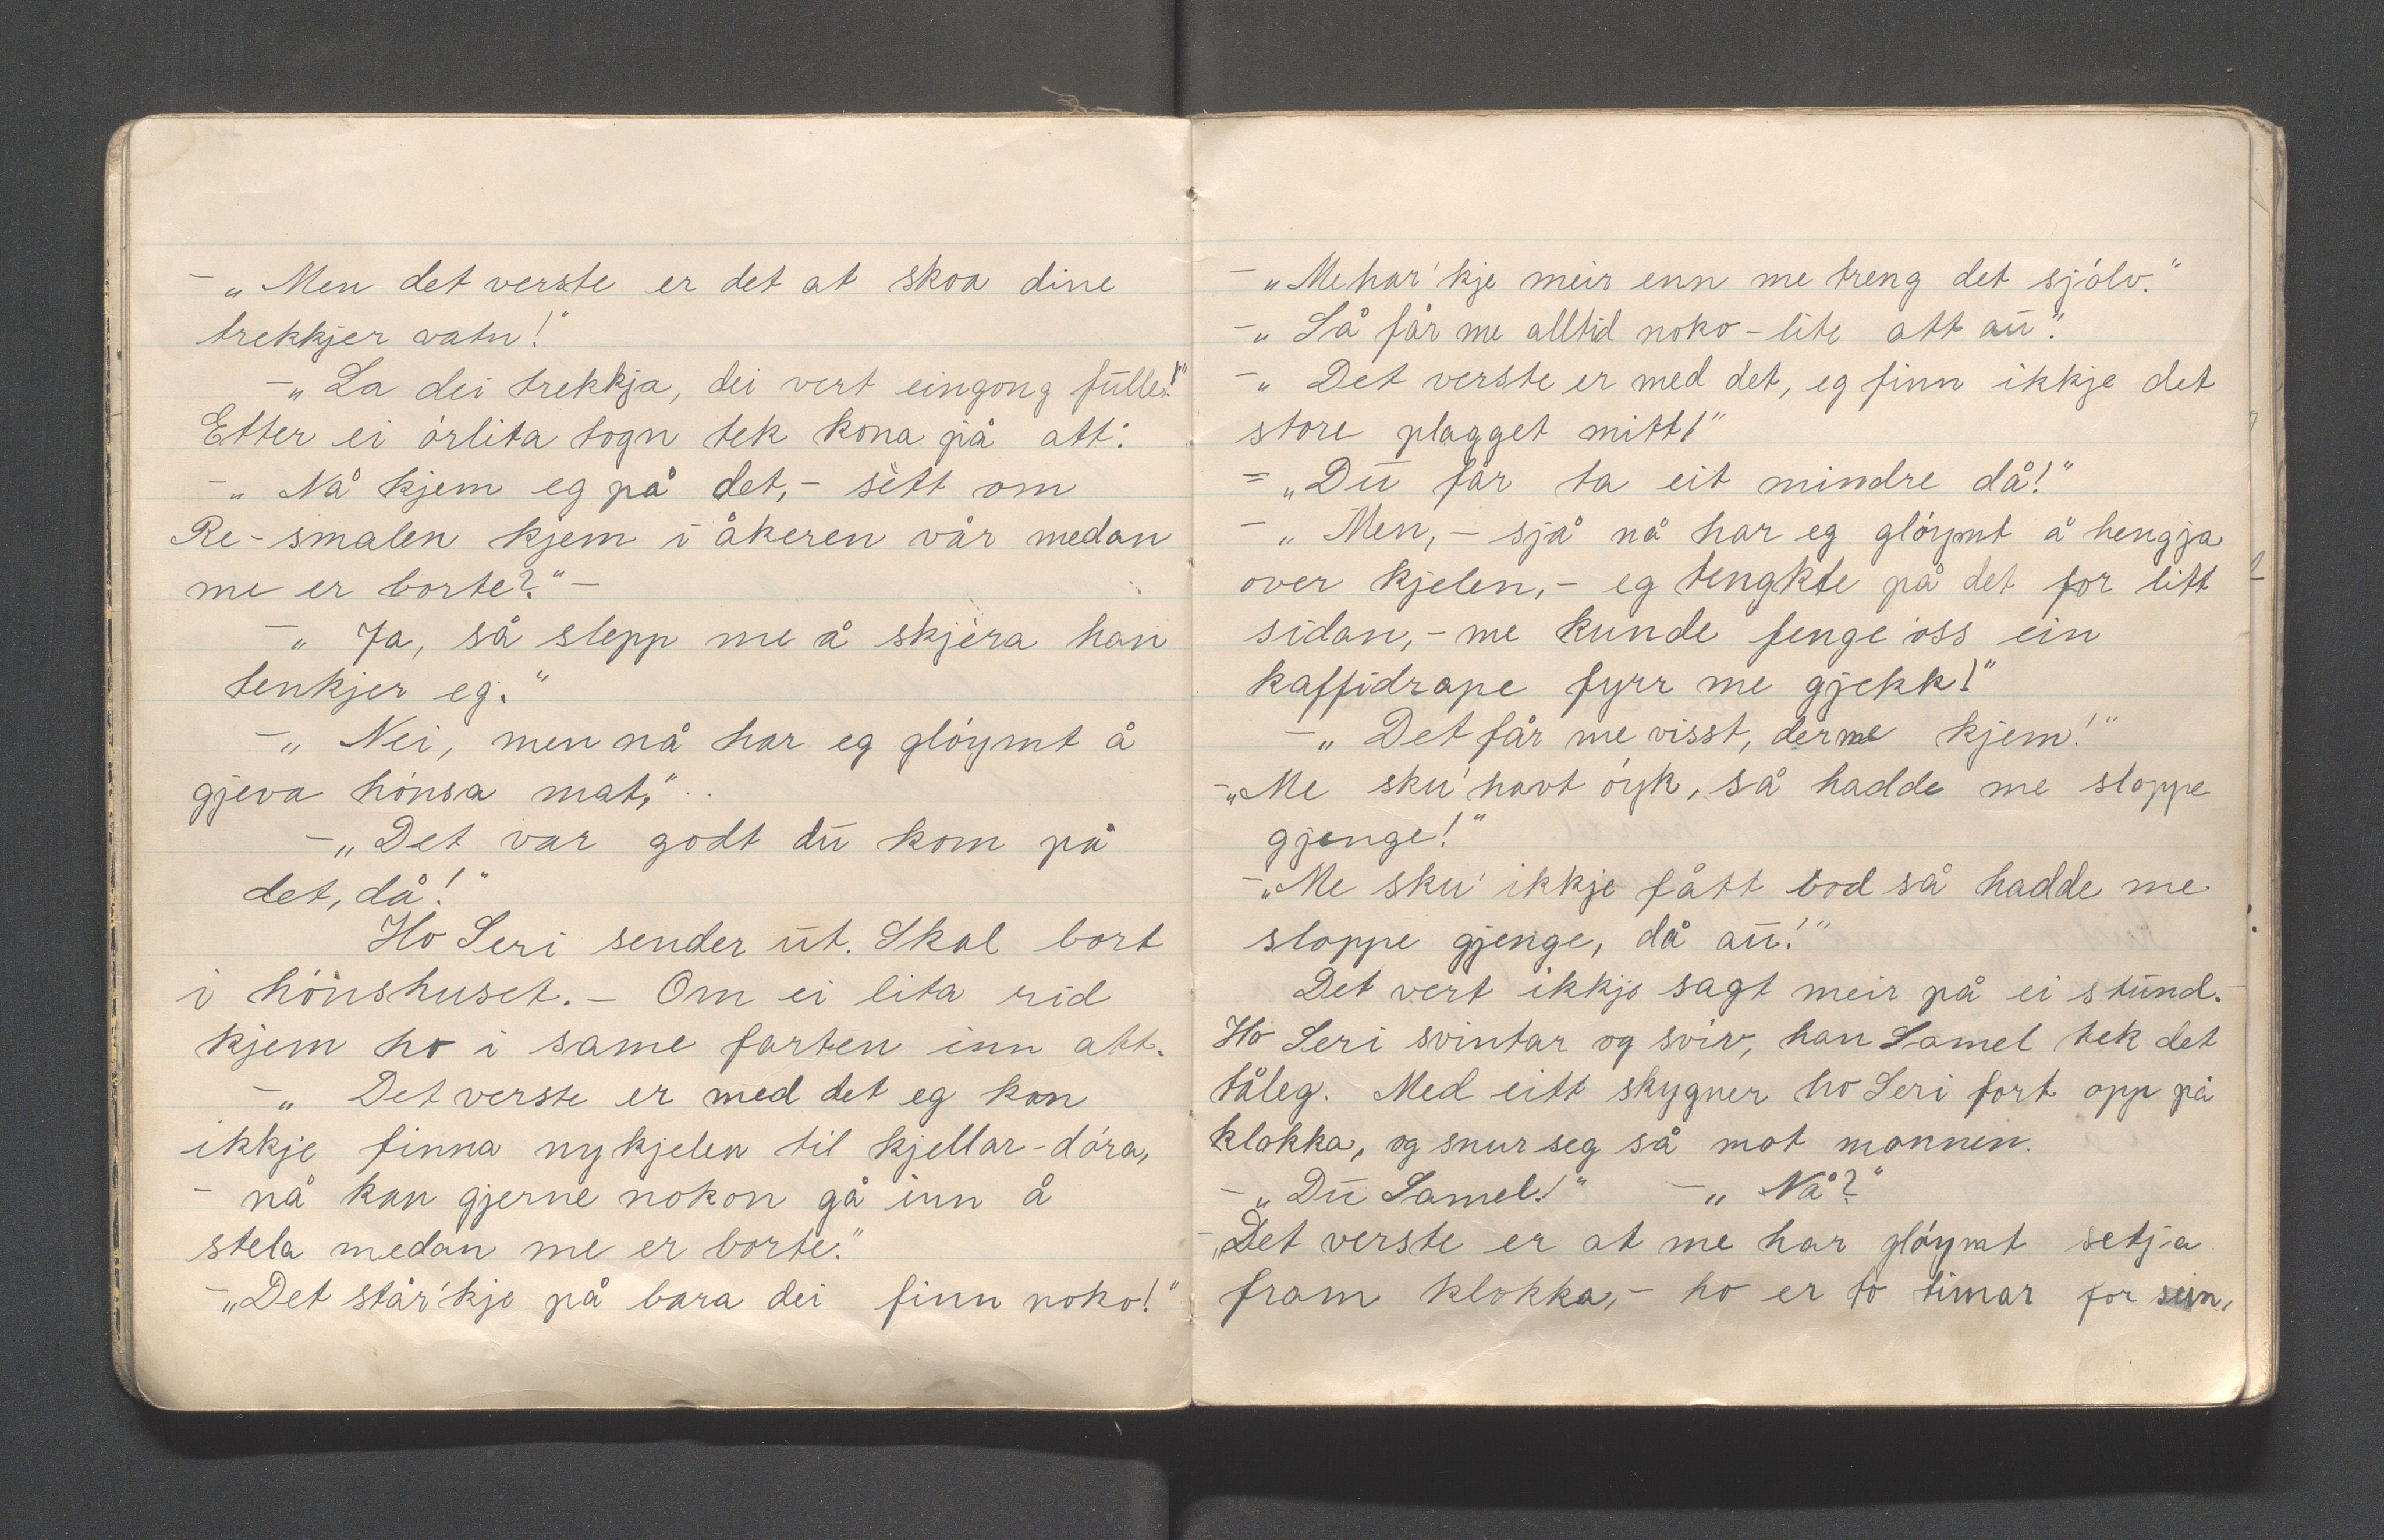 - „Men det verste er det at skoa dine
trekkjer vatn!"
- „La dei trekkja, dei vert eingong fulle!"
Etter ei órlita togn tek kona på att:
- „Nå kjem eg på det, - sètt om
Re-smalen kjem i åkeren vår medan
me er borte?" -
- „Ja, så slepp me å skjèra han
tenkjer eg."
- „Nei, men nå har eg glóymt å
gjeva hónsa mat,"
- „Det var godt du kom på
det, då!"
Ho Seri sender ut. Skal bort
i hónshuset. - Om ei lita rid
kjem ho i same farten inn att.
- „Det verste er med det eg kan
ikkje finna nykjelen til kjellar-dóra,
- nå kan gjerne nokon gå inn å
stela medan me er borte."
- „Det står'kje på bara dei finn noko!"
- „Me har'kje meir enn me treng det sjólv."
- „Så får me alltid noko-lite att au".
- „Det verste er med det, eg finn ikkje det
store plagget mitt!"
= „Du får ta eit mindre då!"
- „Men, - sjå nå har eg glóymt å hengja
over kjelen, - eg tengkte på det for litt
sidan, - me kunde fenge oss ein
kaffidrape fyrr me gjekk!"
- „Det får me visst, der me kjem!"
- „Me sku' havt óyk, så hadde me sloppe
gjenge!"
- „Me sku' ikkje fått bod så hadde me
sloppe gjenge, då au!"
Det vert ikkje sagt meir på ei stund.
Ho Seri svintar og sviv, han Samel tek det
tåleg. Med eitt skygner ho Seri fort opp på
klokka, og snur seg så mot mannen.
- „Du Samel!" - „Nå?"
- „Det verste er at me har glóymt setja
fram klokka, - ho er to timar for sein,